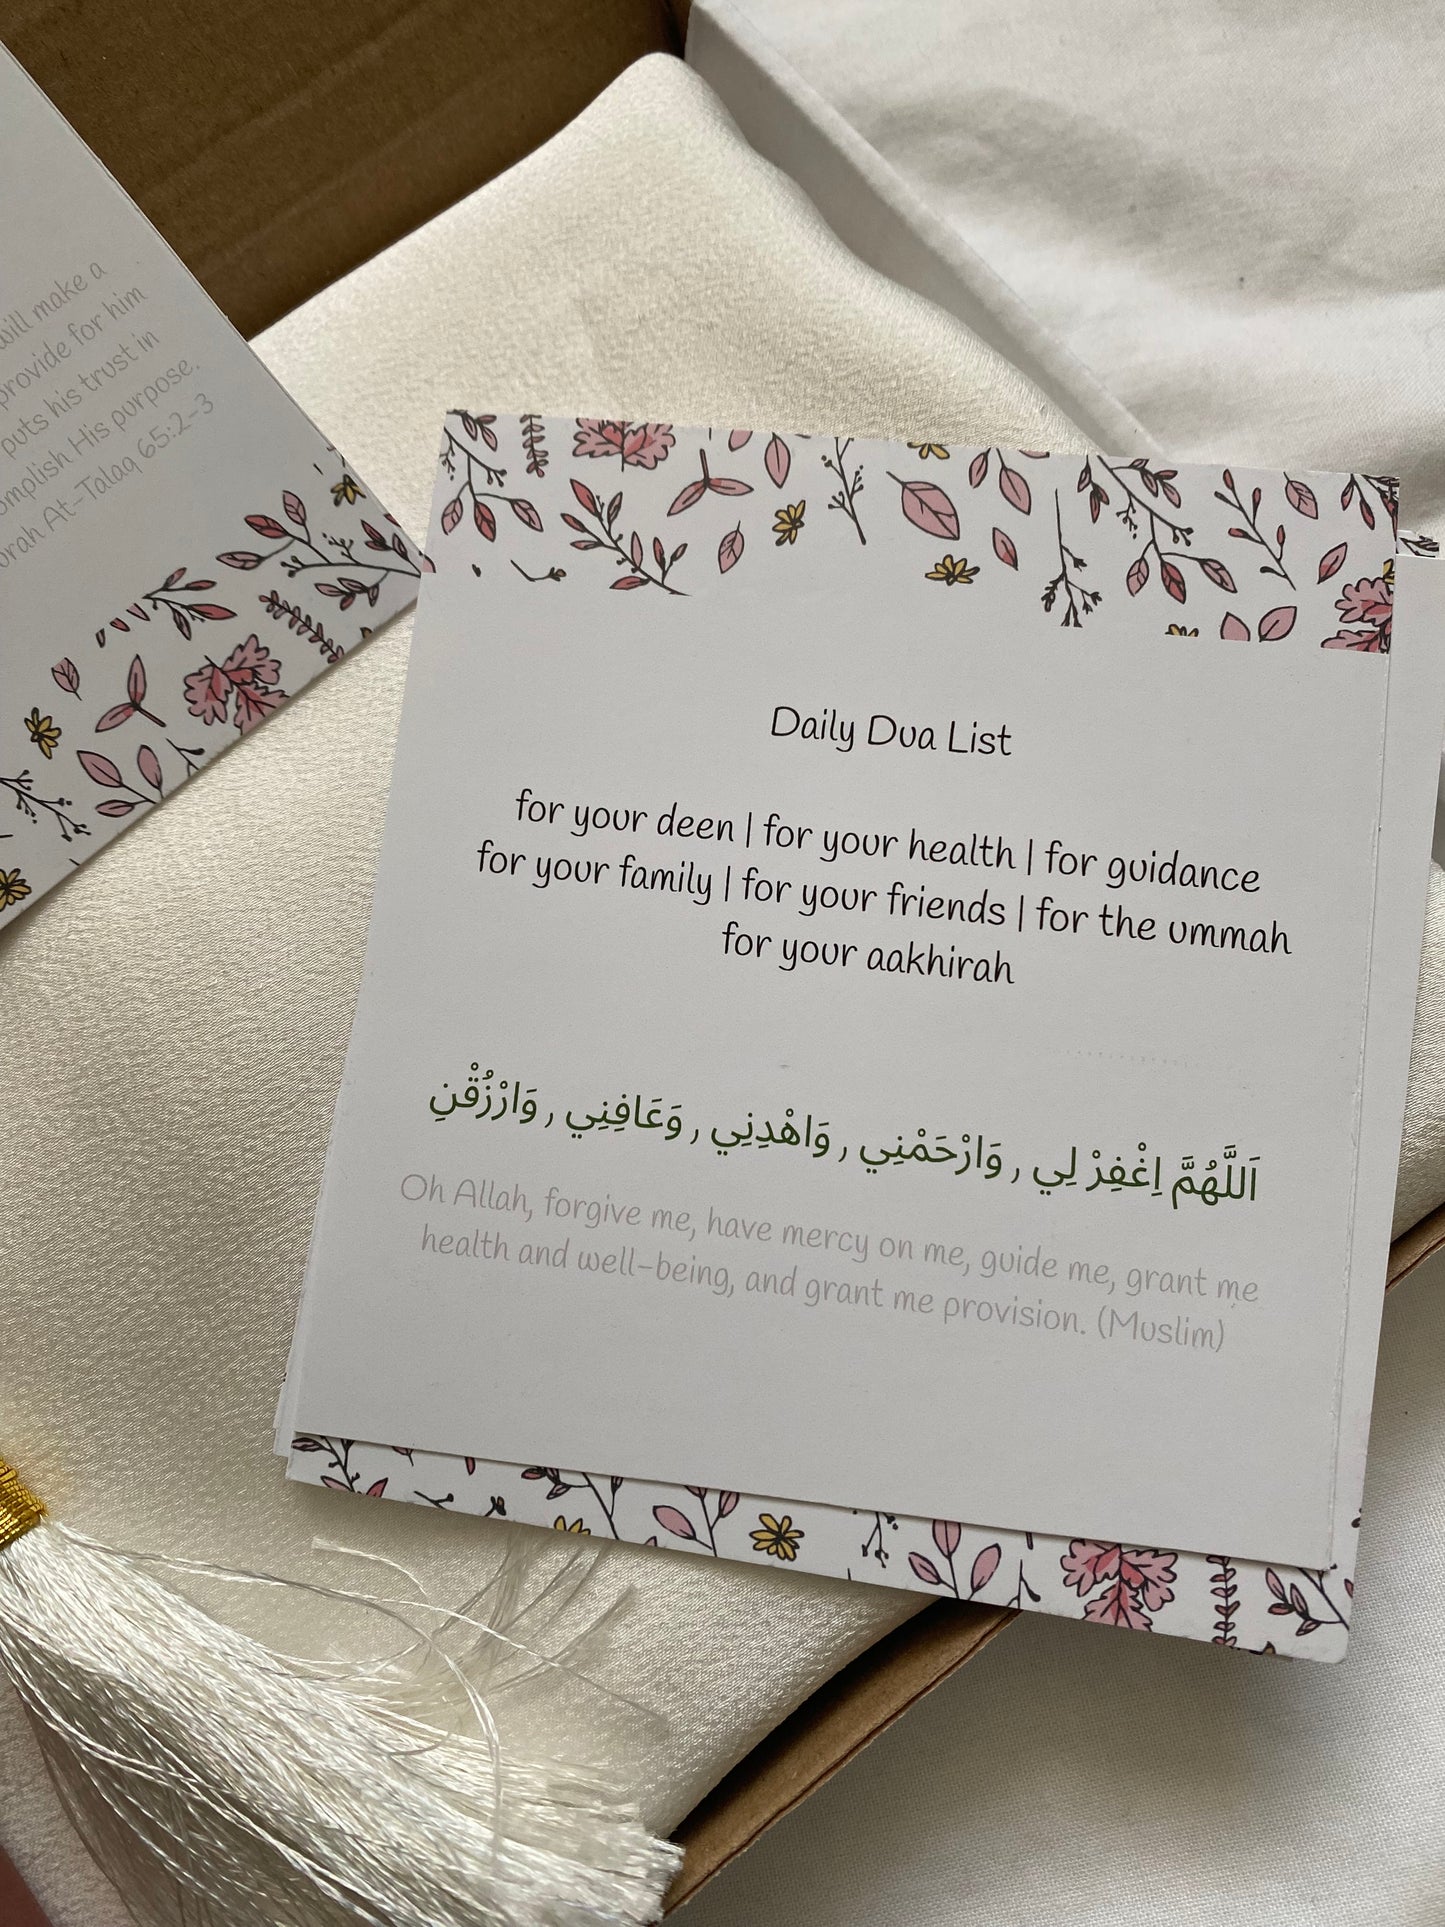 will make a
provide for him
puts his trust in
His purpose.
At-Talaq 65:2-3
Daily Dua List
for your deen | for your health | for guidance
for your family | for your friends | for the ummah
for your aakhirah
اَللَّهُمَّ اِغْفِرْ لِي , وَارْحَمْنِي , وَاهْدِنِي , وَعَافِنِي , وَارْزُقْنِ
Oh Allah, forgive me, have mercy on me, guide me, grant me
health and well-being, and grant me provision. (Muslim)